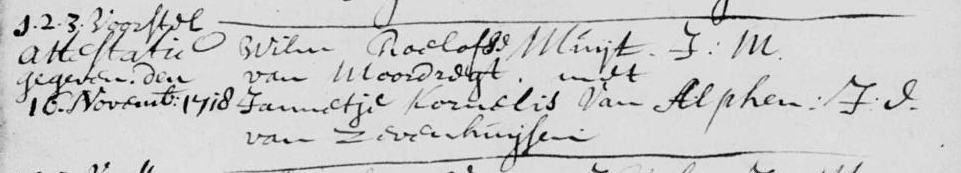 1.2.3. Voorstel
attestatie Wilm Roelofse Muijt. J: M.
gegeven. den van Moordregt. met
16. Novemb: 1718 Jannetje Kornelis Van Alphen: J: d.
van Zevenhuijsen